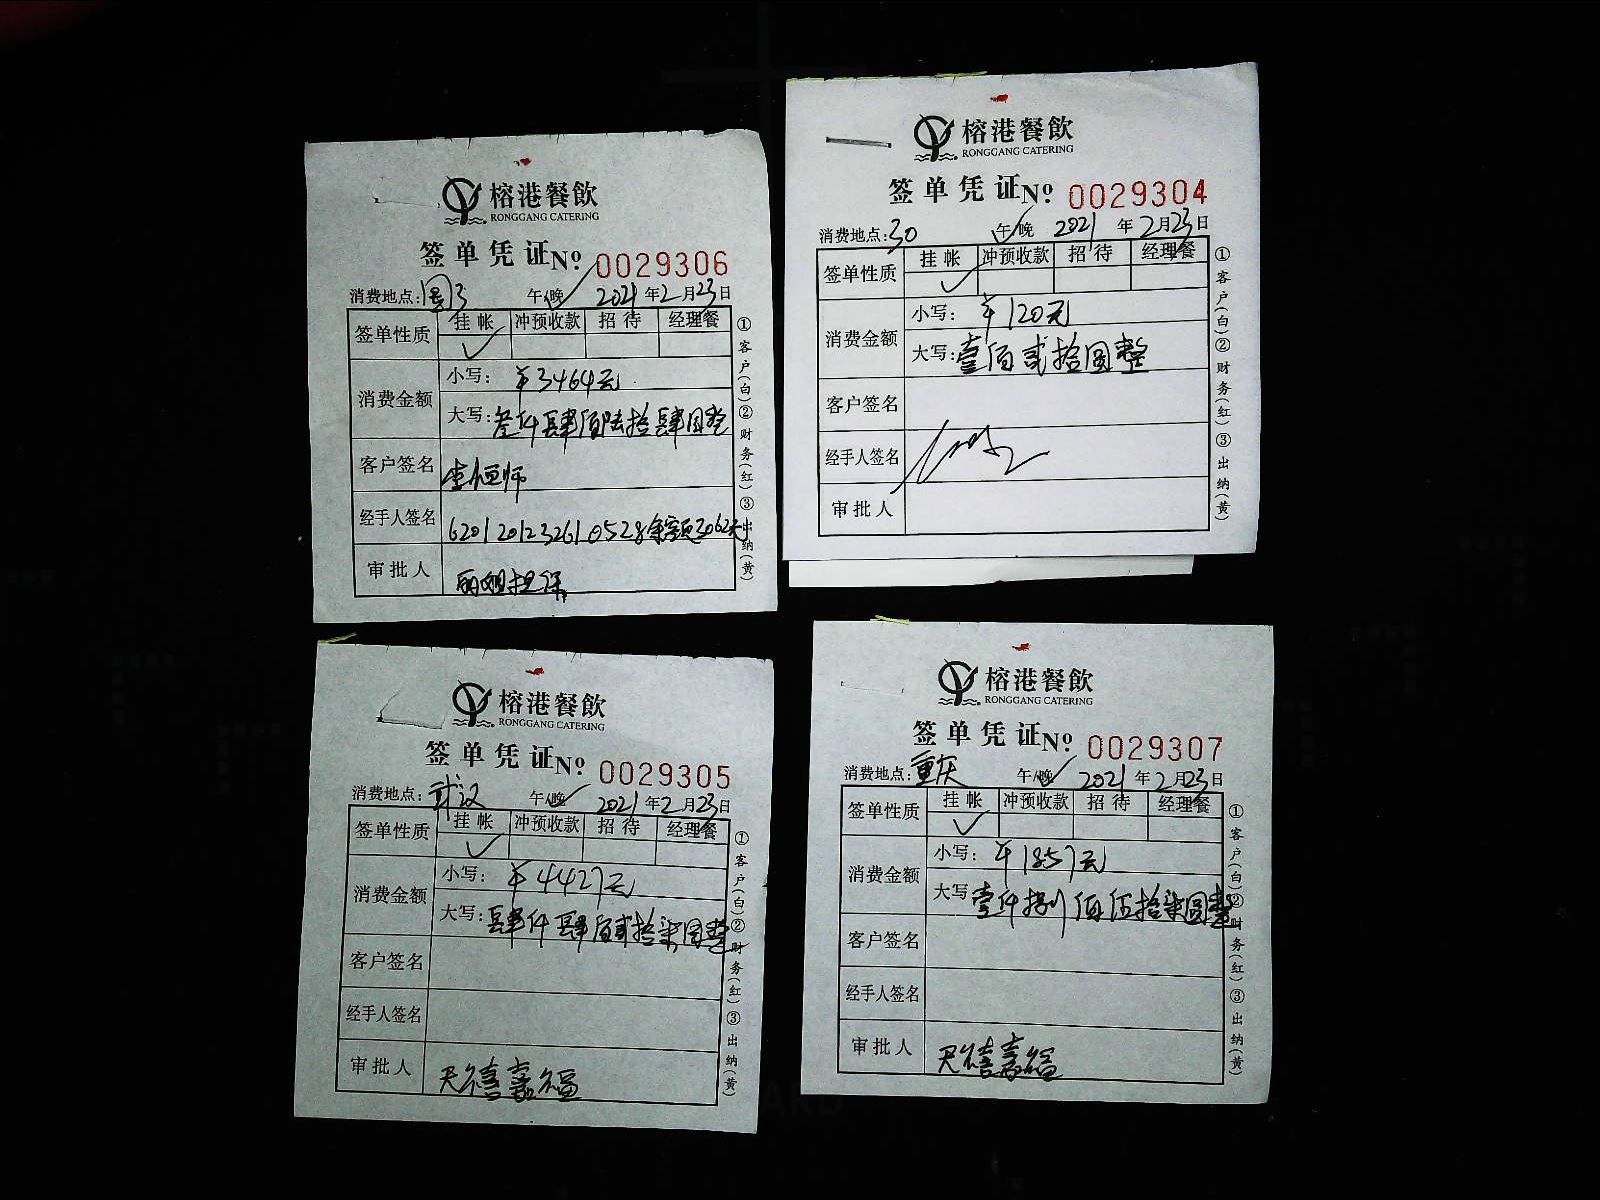 榕港餐飲
RONGGANG CATERING
签单凭证 Nº 0029306
消费地点: 午/晚 ✓ 2021年2月23日
签单性质 挂帐 冲预收款 招待 经理餐
✓
消费金额
小写: ¥3464元
大写: 叁仟肆佰陆拾肆圆整
客户签名 李恒师
经手人签名 6201201232610528余额3062元
审批人 丽姐担保
①客户(白)②财务(红)③出纳(黄)
榕港餐飲
RONGGANG CATERING
签单凭证 Nº 0029304
消费地点:30 午/晚 2021年2月23日
签单性质 挂帐 冲预收款 招待 经理餐
✓
消费金额
小写: ¥120元
大写: 壹佰贰拾圆整
客户签名
经手人签名
审批人
①客户(白)②财务(红)③出纳(黄)
榕港餐飲
RONGGANG CATERING
签单凭证 Nº 0029305
消费地点: 武汉 午/晚 ✓ 2021年2月23日
签单性质 挂帐 冲预收款 招待 经理餐
✓
消费金额
小写: ¥4427元
大写: 肆仟肆佰贰拾柒圆整
客户签名
经手人签名
审批人 天禧嘉福
①客户(白)②财务(红)③出纳(黄)
榕港餐飲
RONGGANG CATERING
签单凭证 Nº 0029307
消费地点: 重庆 午/晚 ✓ 2021年2月23日
签单性质 挂帐 冲预收款 招待 经理餐
✓
消费金额
小写: ¥1857元
大写 壹仟捌佰伍拾柒圆整
客户签名
经手人签名
审批人 天禧嘉福
①客户(白)②财务(红)③出纳(黄)